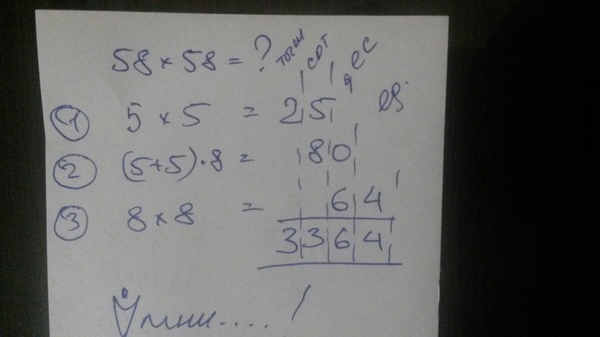 58 × 58 = ? тыш сот дес ед
① 5 × 5 = 25
② (5+5)·8 = 80
③ 8 × 8 = 64
3364
Умни.... !